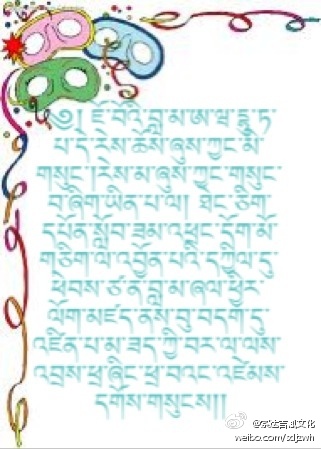 ༧། ཇོ་བོའི་བླ་མ་ཨ་ཝ་དྷཱུ་ཏ་
པ་དེ་རེས་ཆོས་ཞུས་ཀྱང་མི་
གསུང་།རེས་མ་ཞུས་ཀྱང་གསུང་
བ་ཞིག་ཡིན་པ་ལ། ཐེང་ཅིག་
དཔོན་སློབ་ཟམ་འཕྲང་དོག་མོ་
གཅིག་ལ་འབྱོན་པའི་དཀྱིལ་དུ་
ཕེབས་ཙ་ན་བླ་མ་ཞལ་ཕྱིར་
ལོག་མཛད་ནས་བུ་བདག་ཏུ་
འཛིན་པ་མ་ཟད་ཀྱི་བར་ལ་ལས་
འབྲས་ཕྲ་ཞིང་ཕྲ་བའང་འཛེམས་
དགོས་གསུངས།།
weibo.com/sdjzwh